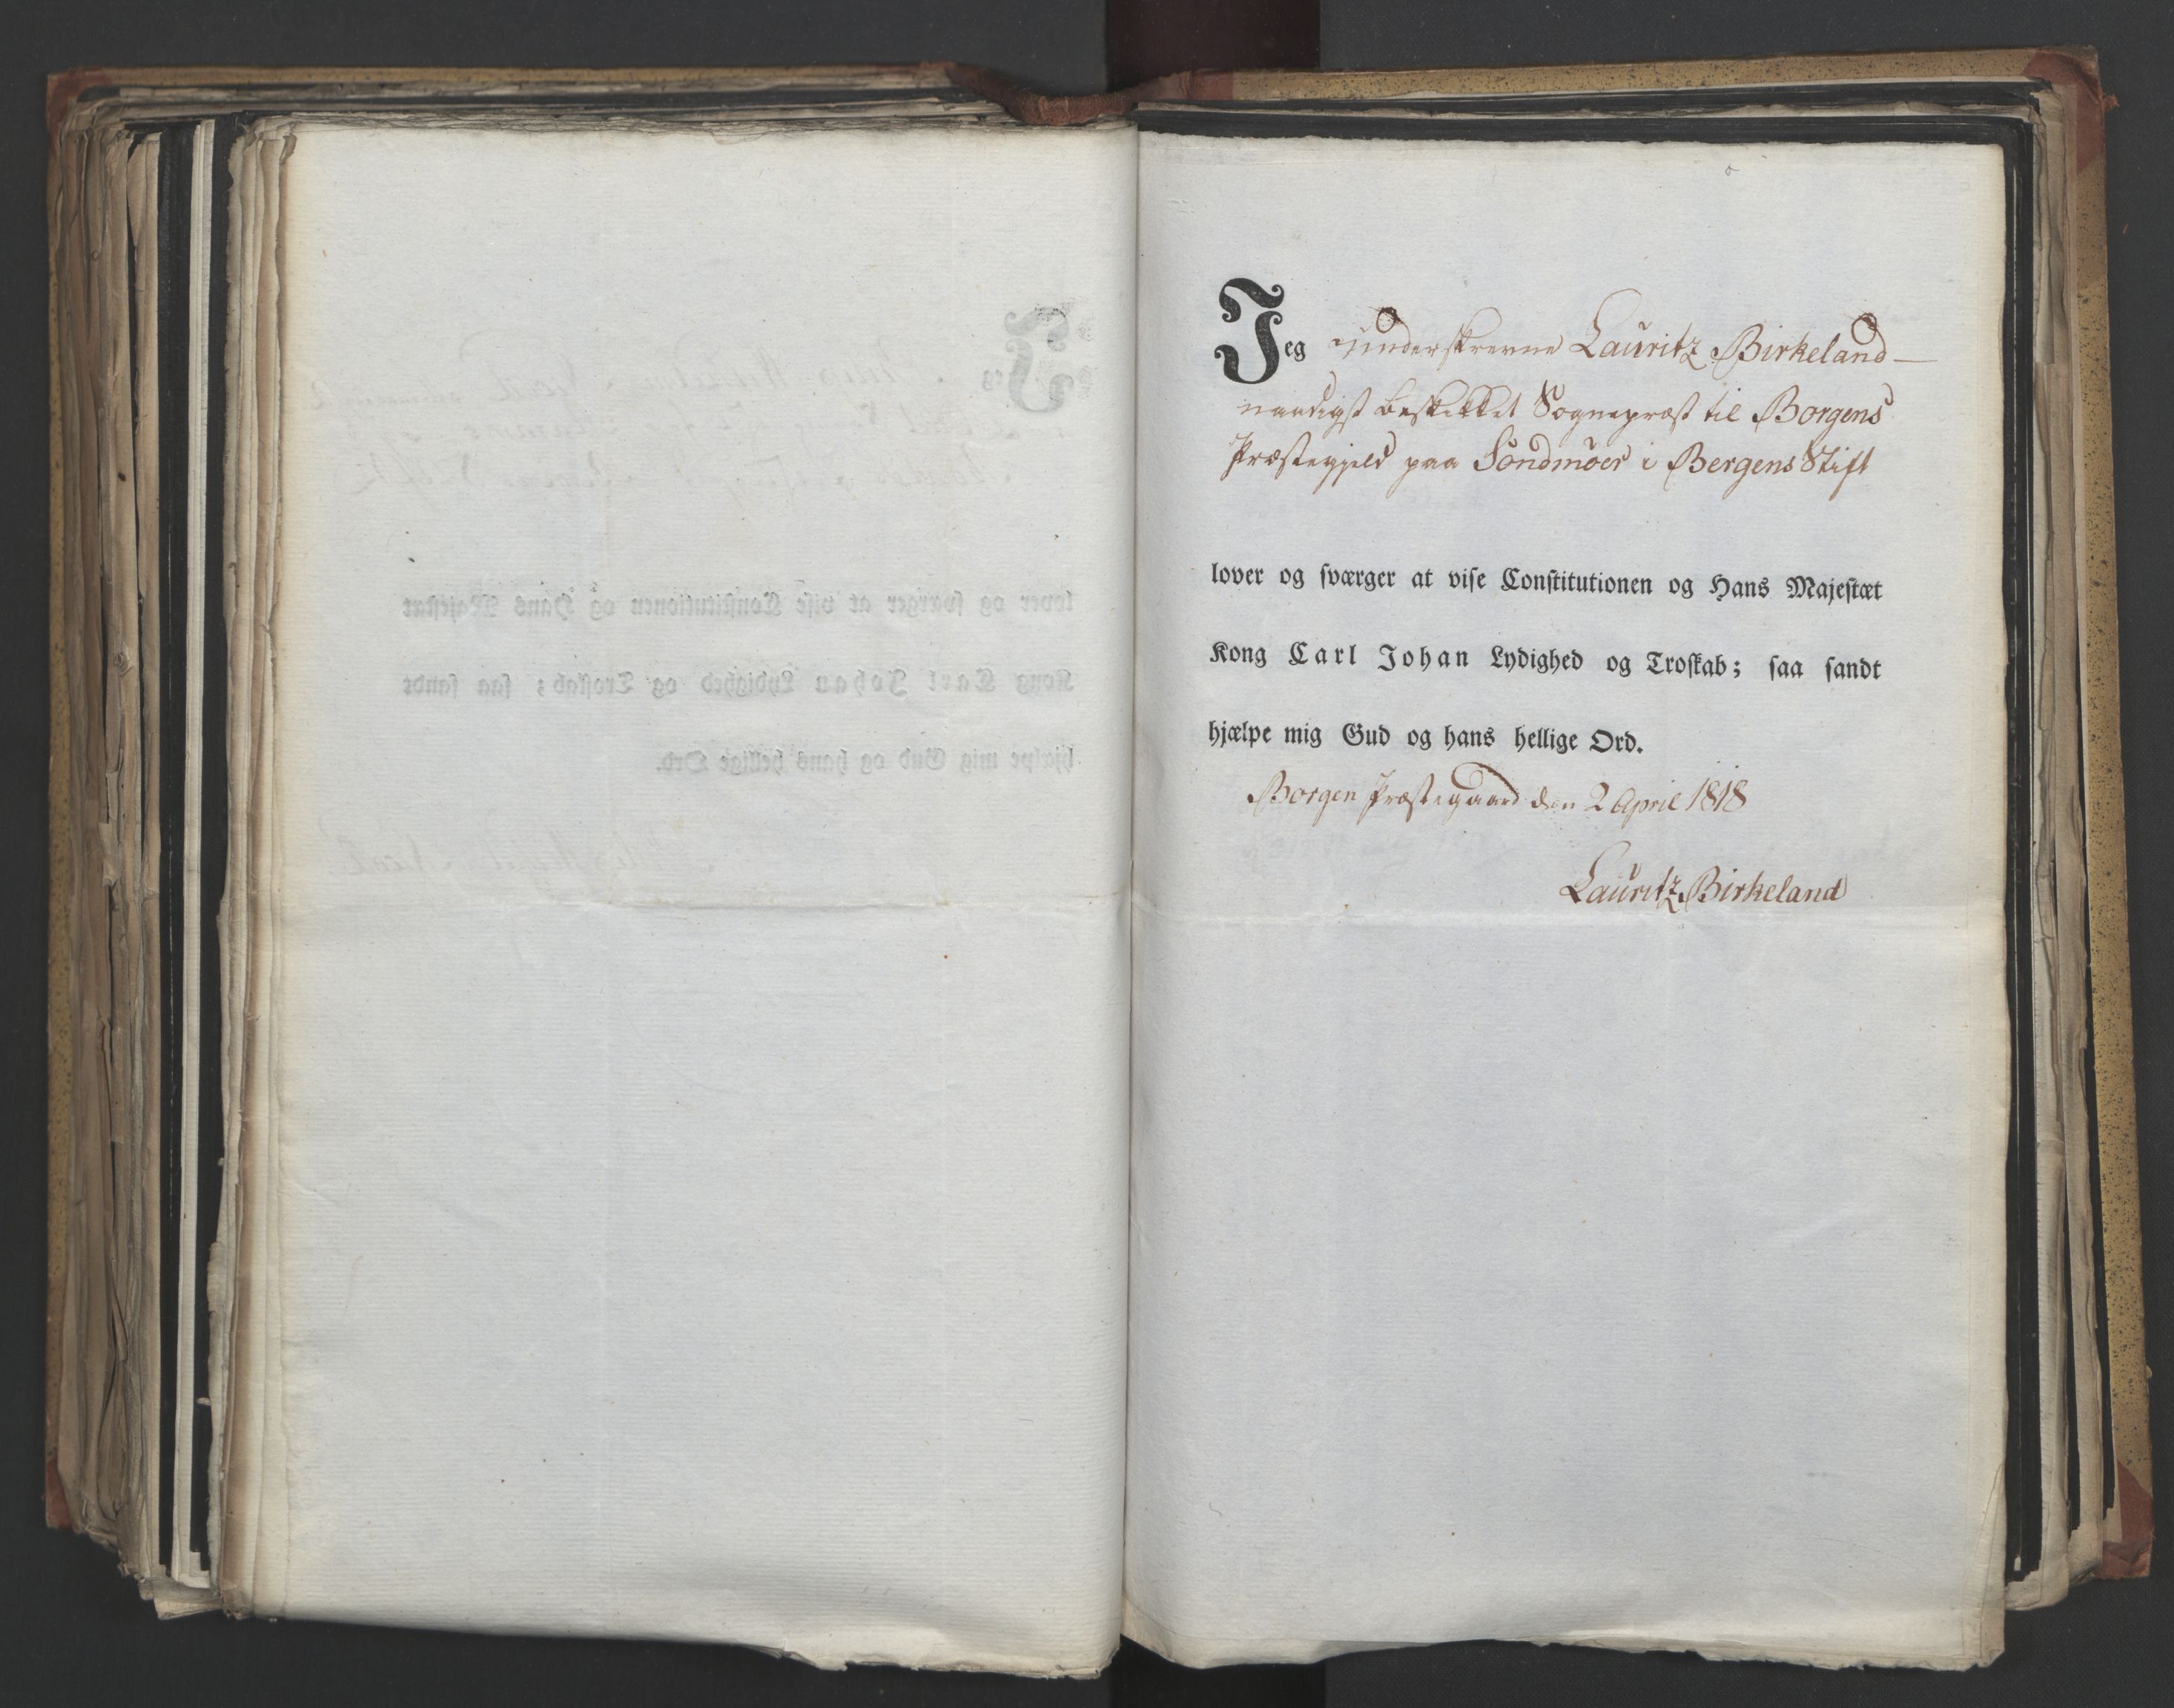 Jeg underskrevne Lauritz Birkeland —
naadigst beskikket Sognepræst til Borgens
Præstegjeld paa Söndmöer i Bergens Stift
lover og sværger at vise Constitutionen og Hans Majestæt
Kong Carl Johan Lydighed og Troskab; saa sandt
hjælpe mig Gud og hans hellige Ord.
Borgen Præstegaard den 2 April 1818
Lauritz Birkeland